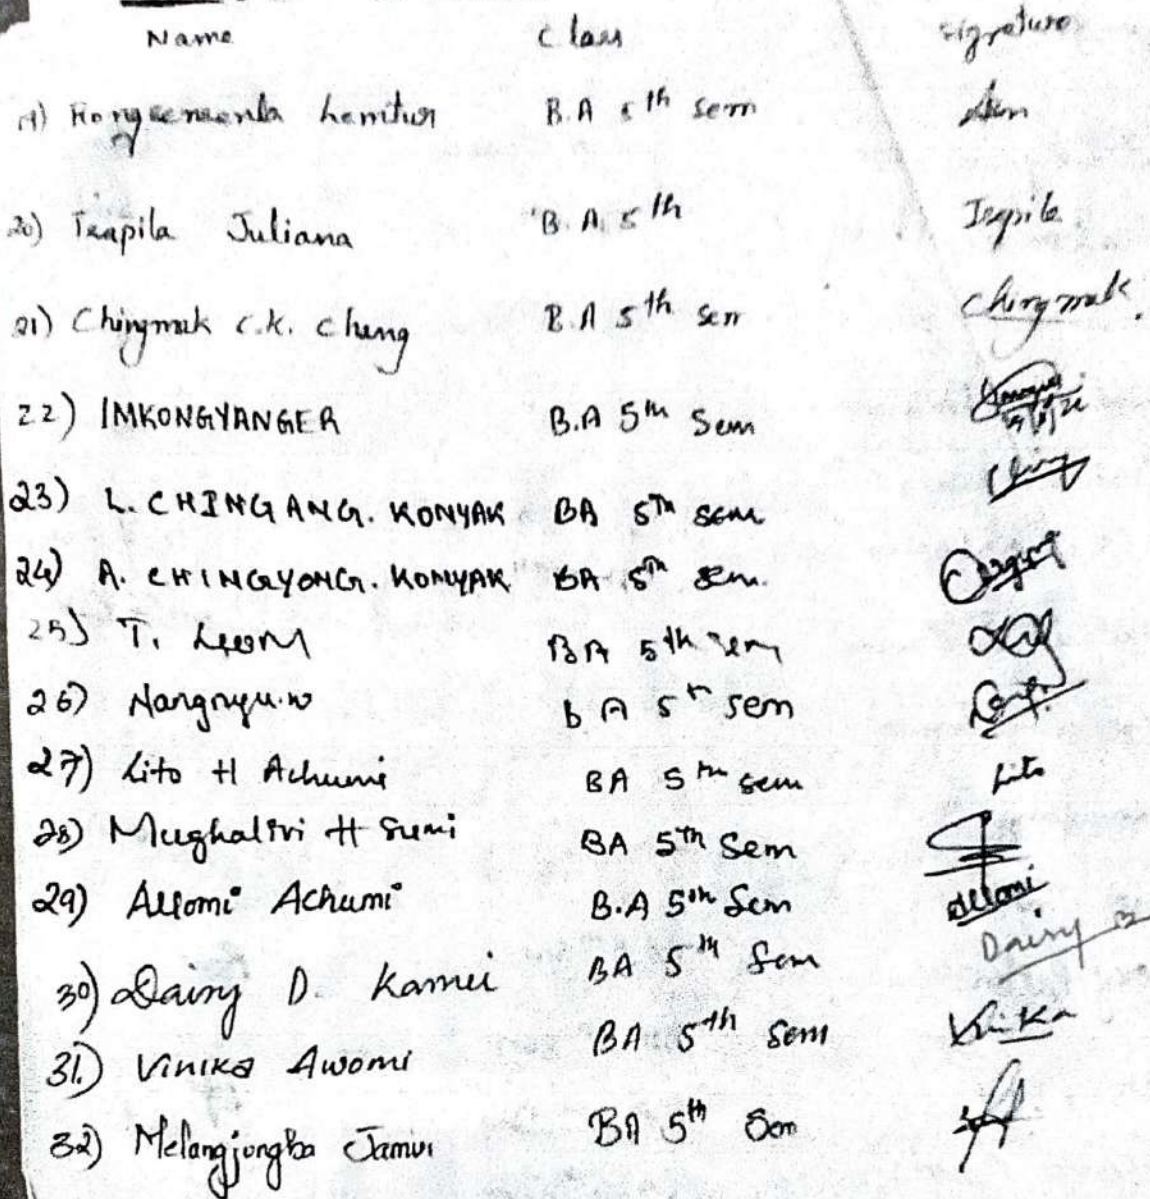 Name Class Signature
19) Rongsenmenla Lemtur B.A 5th Sem
20) Teapila Juliana B.A. 5th Teapila
21) Chingmak C.K. Chang B.A 5th Sem Chingmak.
22) IMKONGYANGER B.A 5th Sem
23) L. CHINGANG. KONYAK BA 5Th Sem Ching
24) A. CHINGYONG. KONYAK BA 5th Sem.
25) T. Leom BA 5th Sem
26) Nangnyu.w BA 5th Sem
27) Lito H Achumi BA 5th Sem Lito
28) Mughalivi H Sumi BA 5th Sem
29) Allomi Achumi B.A 5th Sem Allomi
30) Dainy D. Kamei BA 5th Sem Dainy
31.) Vinika Awomi BA 5th Sem Vinika
32) Melangjongba Jamir BA 5th Sem